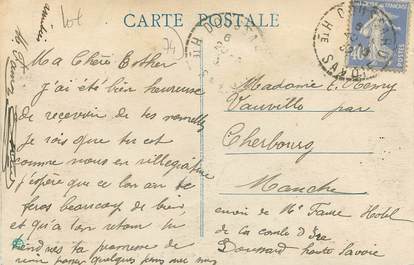 CARTE POSTALE
lot
74
Ma Chère Esther
j'ai été bien heureuse
de recevoir de tes nouvelles
je vois que tu est
comme nous en villégiature
j'espère que ce bon air te
fera beaucoup de bien
et qu'a ton retour tu
la promesse de
venir passer quelques jours avec nous
Madame E. Henry
Vauville par
Cherbourg
Manche
envoi de Me Faure Hotel
de la combe d'Ire
Doussard haute Savoie